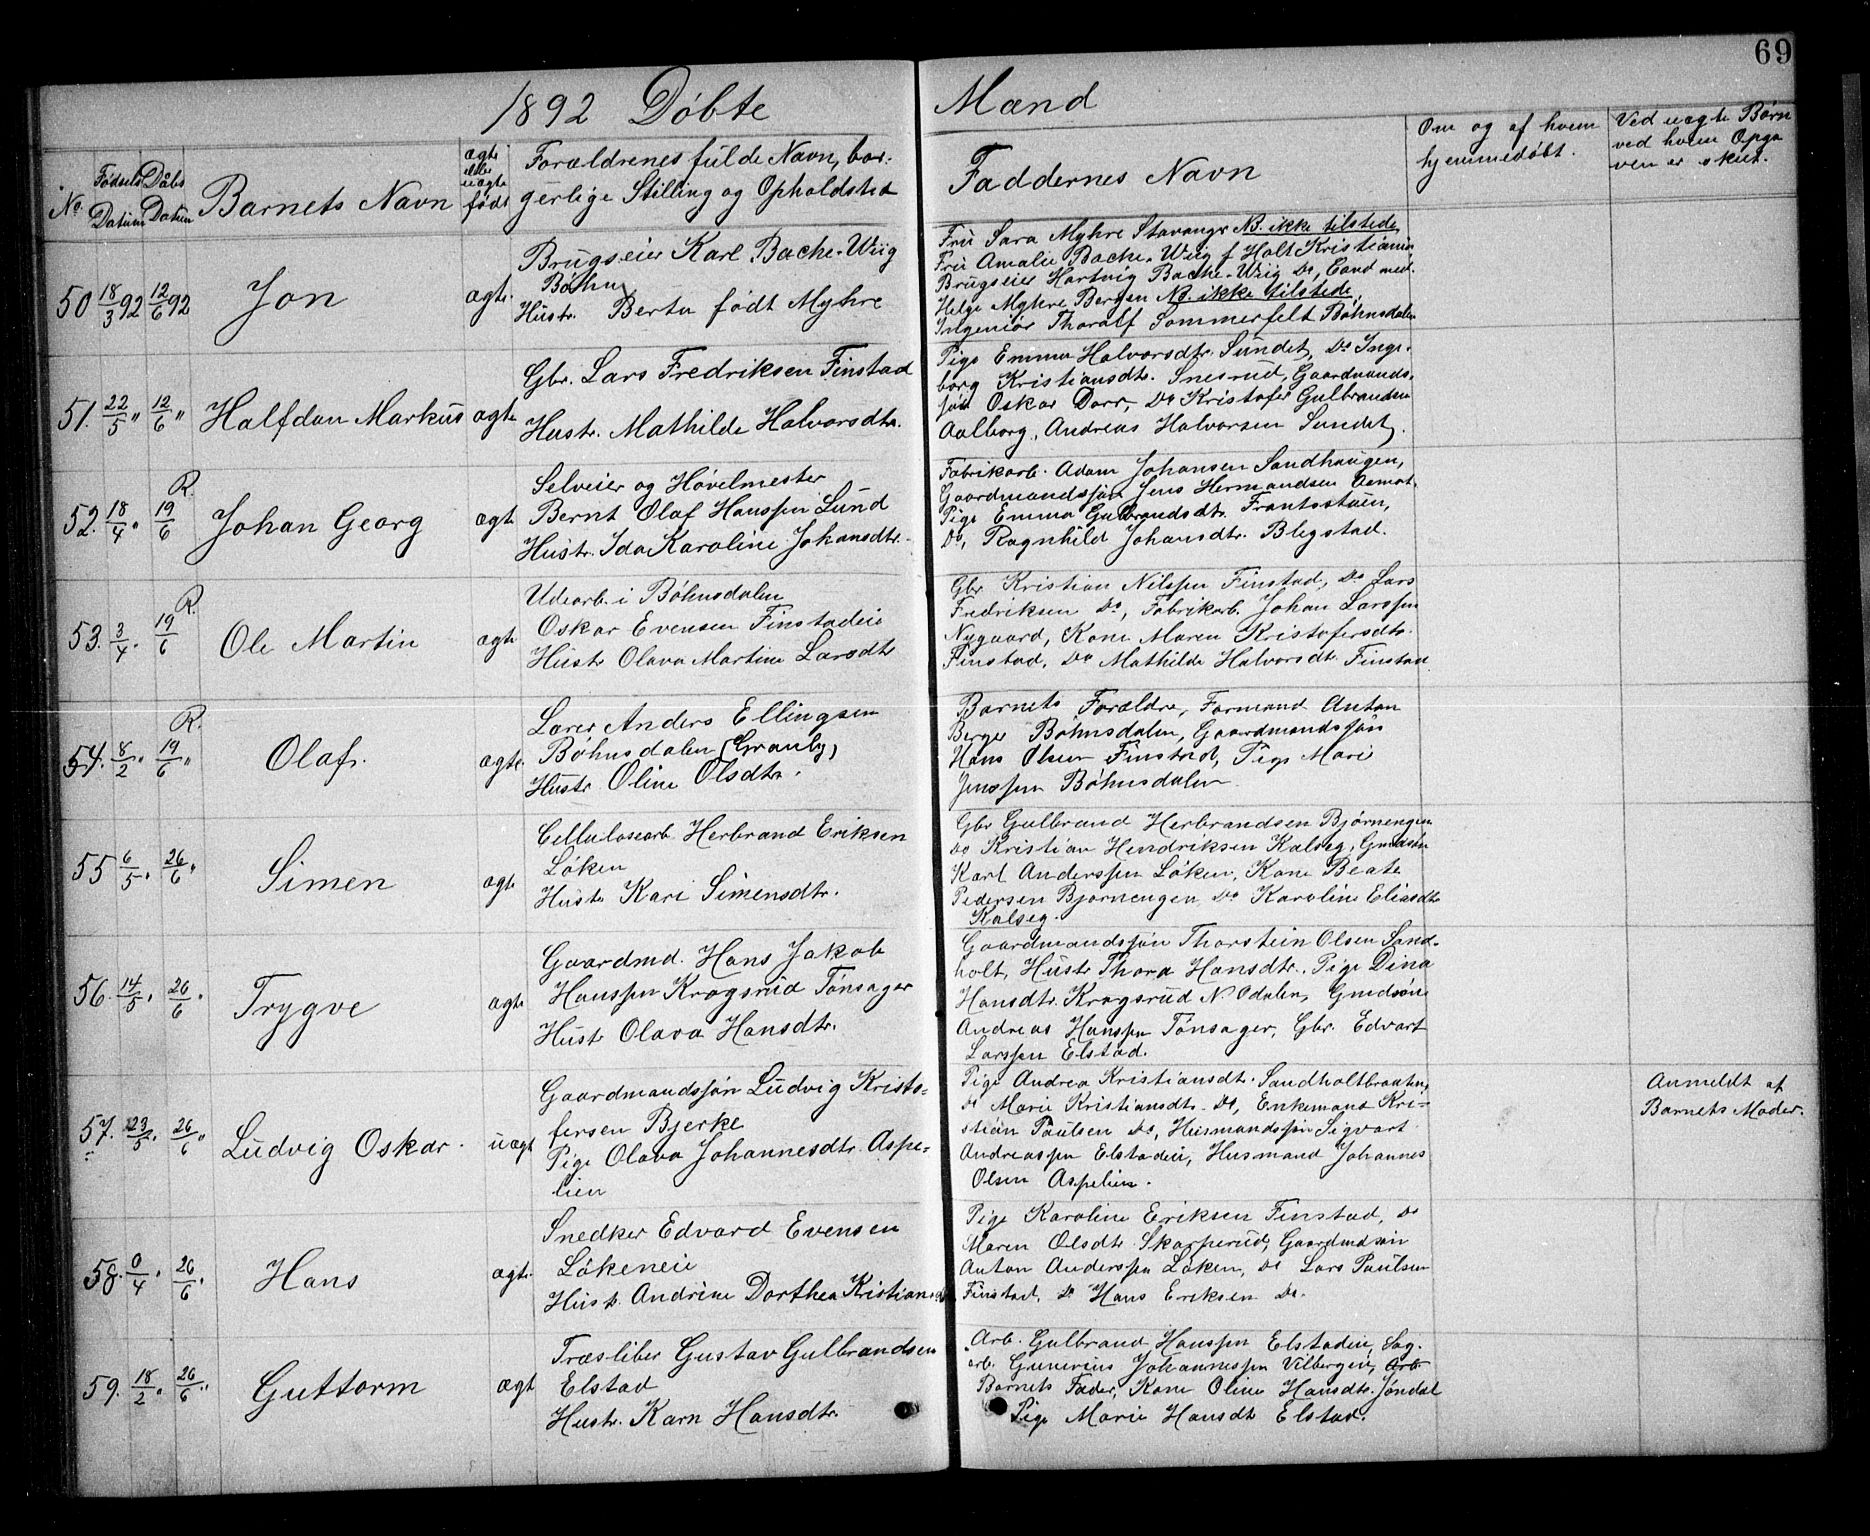 69
1892 Döbte Mænd
No.
Fødsels Datum
Døbs Datum
Barnets Navn
ægte eller uægte født
Forældrenes fulde Navn, bor-
gerlige Stilling og Opholdsted
Faddernes Navn
Om og af hvem
hjemmedöbt.
Ved uægte Børn
ved hvem Opga
ven er skeet.
50 18/3 92 12/6 92 Jon ægte.
Brugseier Karl Bache-Wiig
Bøhn
Hustr. Berta født Myhre
Fru Sara Myhre Stavanger NB. ikke tilstede
Fru Amalie Bache-Wiig f Holt Kristiania
Brugseier Hartvig Bache-Wiig Do, Cand med.
Helge Myhre Bergen NB. ikke tilstede,
Ingeniör Tharalf Sommerfelt Bøhnsdalen
51. 22/5 " 12/6 " Halfdan Markus ægte
Gbr. Lars Fredriksen Finstad
Hustr. Mathilde Halvorsdtr.
Pige Emma Halvorsdtr. Sundet, Do Inge-
borg Kristiansdtr. Snesrud, Gaardmands-
søn Oskar Dorr, Do Kristofer Gulbrandsen
Aalborg, Andreas Halvorsen Sundet.
R.
52. 18/4 " 19/6 Johan Georg ægte
Selveier og Høvelmester
Bernt Olaf Hanssen Lund
Hustr. Ida Karoline Johansdtr.
Fabrikarb. Adam Johansen Sandhaugen,
Gaardmandssøn Jens Hermandsen
Pige Emma Gulbrandsdtr. Frantsstuen,
Do, Ragnhild Johansdtr. Blegstad.
R.
53. 3/4 " 19/6 Ole Martin ægte
Udearb. i Bøhnsdalen
Oskar Evensen Finstadeie
Hustr Olava Martine Larsdtr
Gbr Kristian Nilssen Finstad, Do Lars
Fredriksen Do, Fabrikarb. Johan Larssen
Nygaard, Kone Maren Kristofersdtr.
Finstad, Do Mathilde Halvorsdtr. Finstad
R.
54. 8/2 " 19/6 " Olaf. ægte.
Lærer Anders Ellingsen
Bøhnsdalen (Granly)
Hustr Oline Olsdtr.
Barnets Forældre, Formand Anton
Berger Bøhnsdalen, Gaardmandssøn
Hans Olsen Finstad, Pige Mari
Jenssen Bøhnsdalen
55 6/5 " 26/6 " Simen ægte
Cellulosearb. Herbrand Eriksen
Löken
Hustr Kari Simensdtr.
Gbr Gulbrand Herbrandsen Björnengen
Do Kristian Hendriksen Kalseg, Gmdsøn
Karl Anderssen Löken, Kone Beate
Pedersen Bjørnengen Do Karoline Eliasdtr
Kalseg.
56. 14/5 " 26/6 " Trygve ægte
Gaardmd. Hans Jakob
Hanssen Krogsrud Tønsager
Hustr Olava Hansdtr.
Gaardmandssøn Thorstein Olsen Sand-
holt, Hustr Thora Hansdtr., Pige Dina
Hansdtr. Krogsrud N. Odalen, Gmdsøn
Andreas Hanssen Tønsager, Gbr. Edvart
Larssen Elstad.
57. 23/5 " 26/6 " Ludvig Oskar. uægte
Gaardmandssøn Ludvig Kristo-
fersen Bjerke
Pige Olava Johannesdtr. Aspe-
lien
Pige Andrea Kristiansdtr. Sandholtbraaten,
Do Marie Kristiansdtr. Do, Enkemand Kri-
stian Paulsen Do, Husmandssøn Sigvart
Andreassen Elstadeie, Husmand Johannes
Olsen Aspelien.
Anmeldt af
Barnets Moder.
58. 0/4 " 26/6 " Hans ægte.
Snedker Edvard Evensen
Lökeneie
Hustr. Andrine Dorthea Kristiansdtr
Pige Karoline Eriksen Finstad, Do
Maren Olsdtr Skarperud, Gaardmdsøn
Anton Anderssen Løken, Do Lars Paulsen
Finstad, Do Hans Eriksen Do.
59. 18/2 " 26/6 " Guttorm ægte
Træsliber Gustav Gulbrandsen
Elstad
Hustr. Karn Hansdtr.
Arb. Gulbrand Hanssen Elstadeie, Sag-
arb. Gunerius Johannessen Vilbergeie, Arb
Barnets Fader, Kone Oline Hansdtr. Jöndal
Pige Marie Hansdtr Elstad.